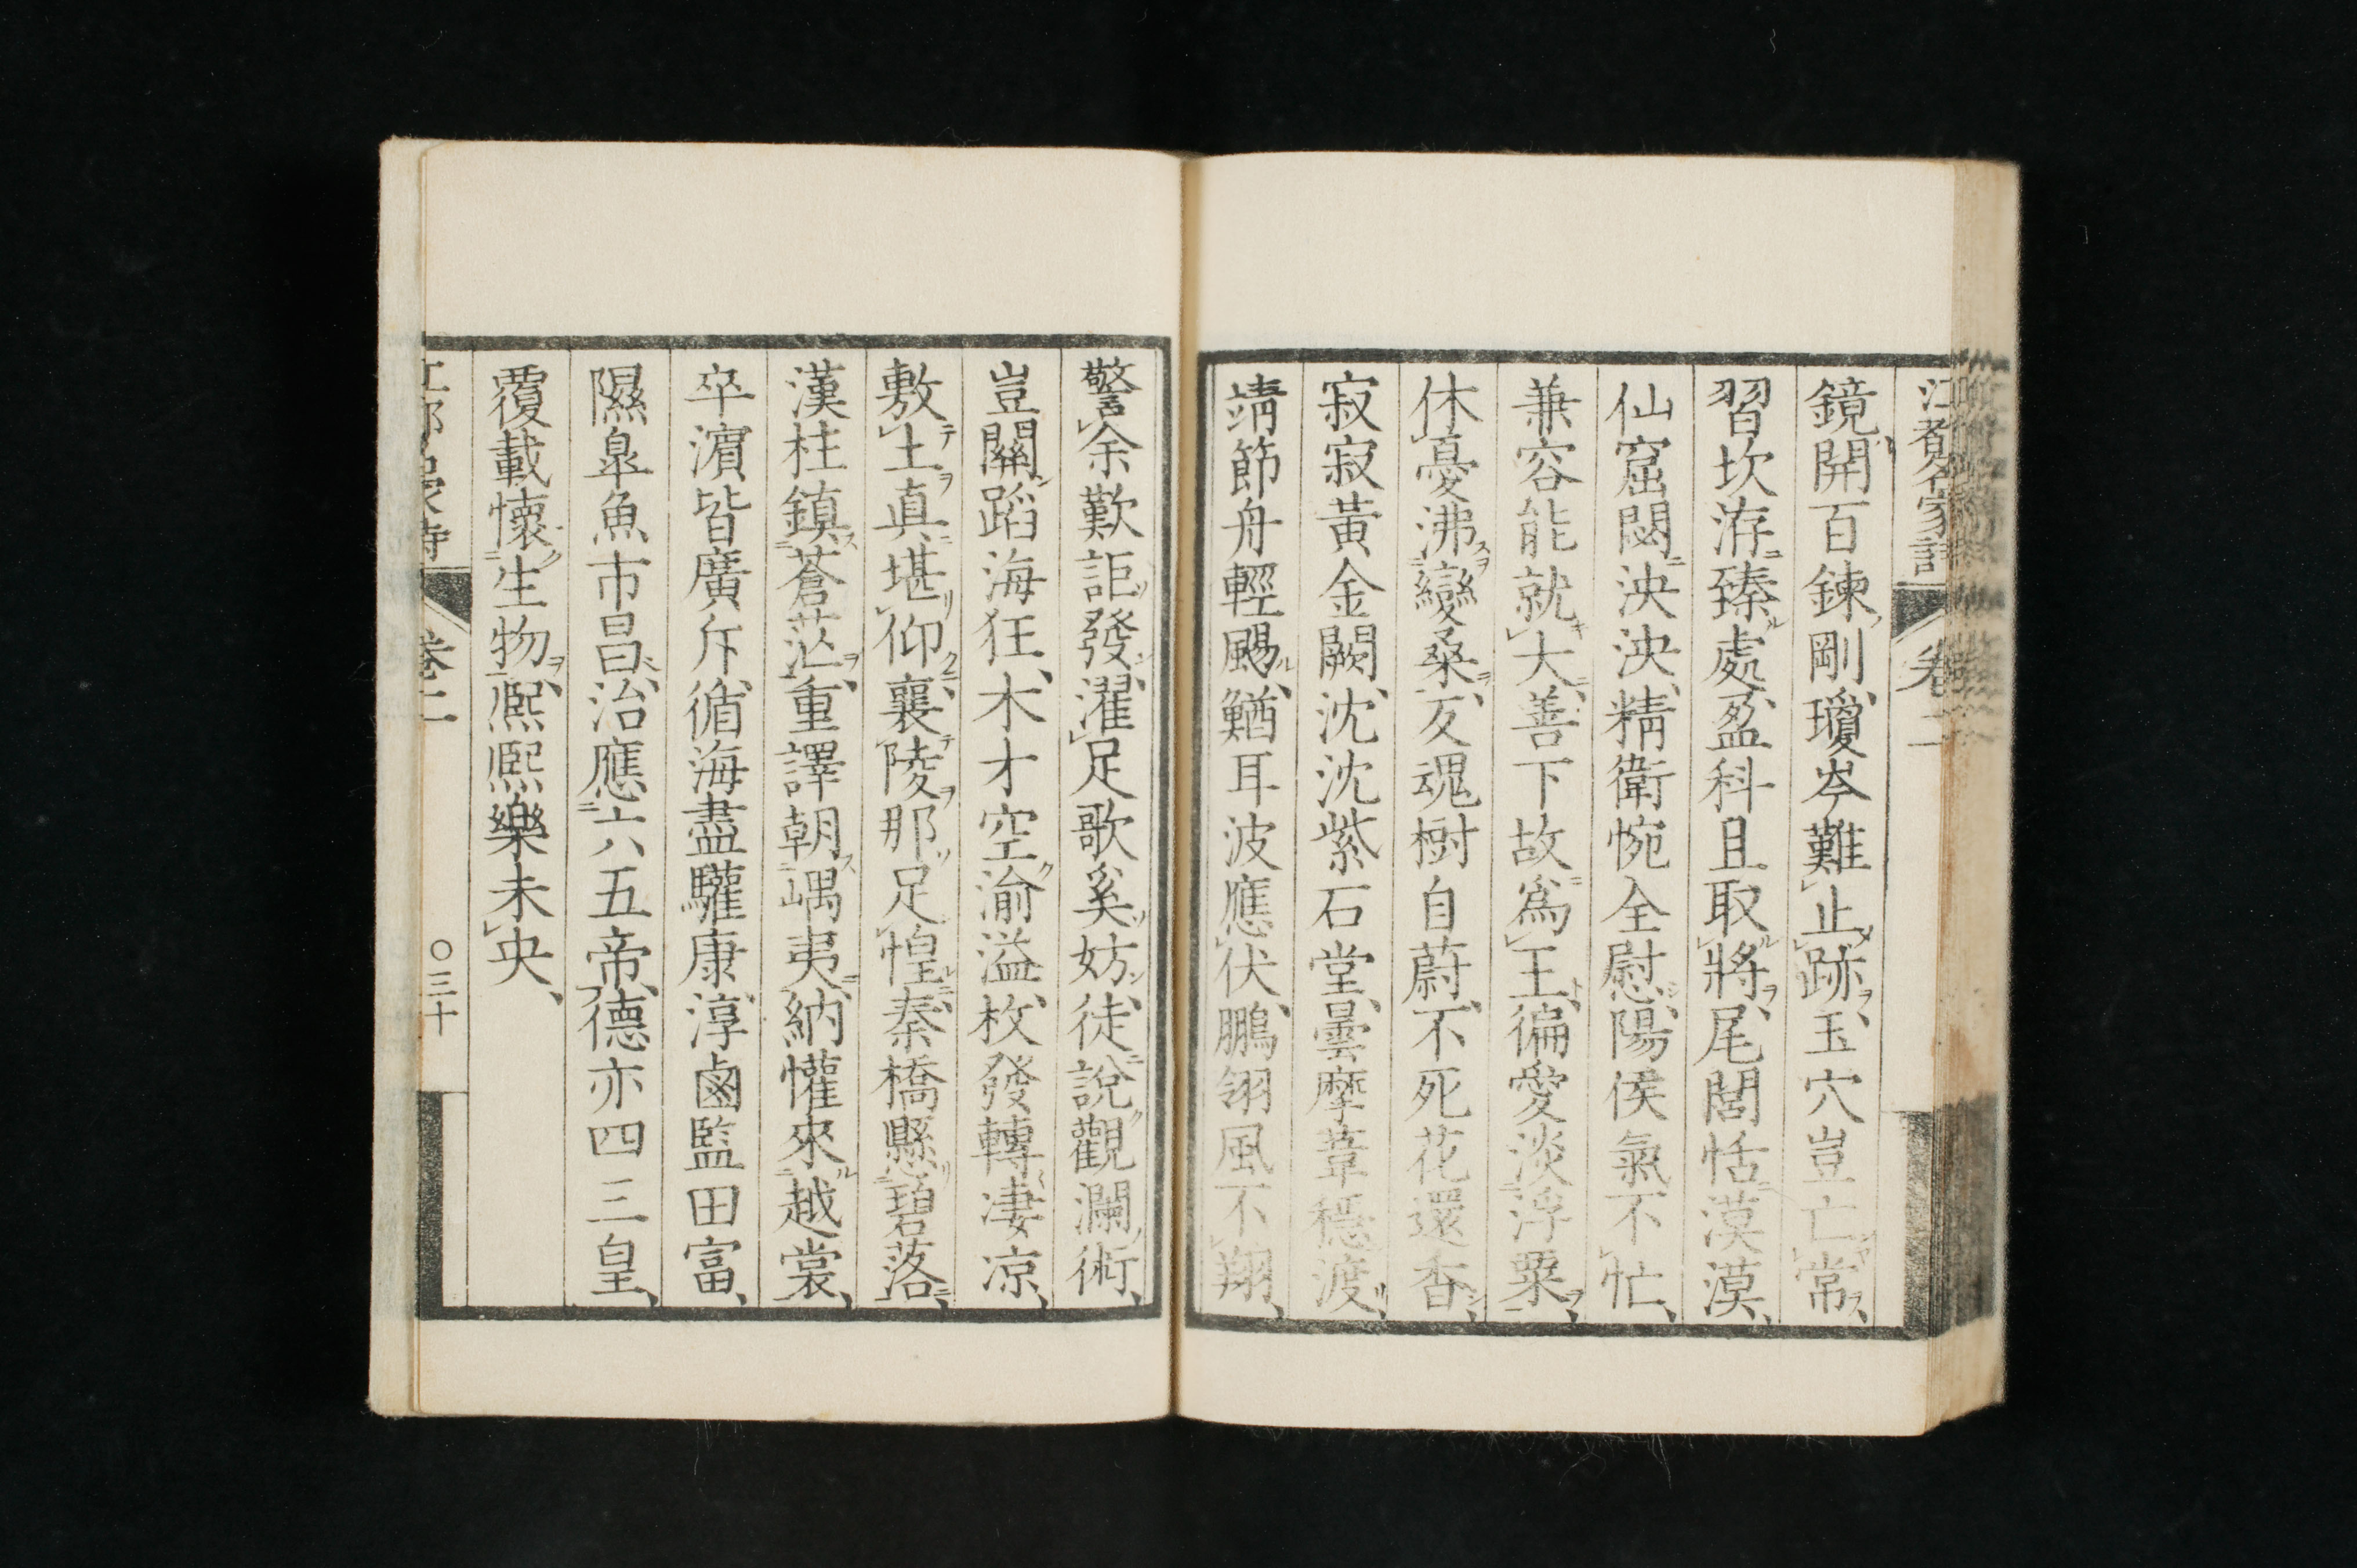 鏡開百鍊剛、瓊岑難止跡、玉穴豈亡常、
習坎洊臻處、盈科且取將、尾閭恬漠漠、
仙窟閟泱泱、精衛惋全慰、陽侯氣不忙、
兼容能就大、善下故爲王、徧愛淡浮粟、
休憂沸變桑、友魂樹自蔚、不死花還香、
寂寂黃金闕、沈沈紫石堂、曇摩葦穩渡、
靖節舟輕颺、鰌耳波應伏、鵬翎風不翔、
警余歎詎發、濯足歌奚妨、徒說觀瀾術、
豈關蹈海狂、木才空渝溢、枚發轉凄凉、
敷土真堪仰、襄陵那足惶、秦橋懸碧落、
漢柱鎮蒼茫、重譯朝嵎夷、納懽來越裳、
卒濱皆廣斥、循海盡驩康、淳鹵監田富、
隰皐魚市昌、治應六五帝、德亦四三皇、
覆載懷生物、熙熙樂未央、
卷二
〇三十